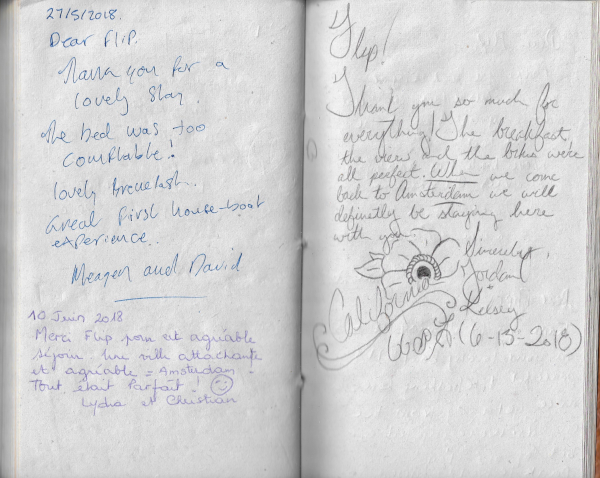 27/5/2018.
Dear Flip.
Thank you for a
lovely stay.
The bed was too
comftable!
lovely breakfast.
Great first house-boat
experience..
Meagen and David
10 Juin 2018
Merci Flip pour cet agréable
séjour. Une ville attachante
et agréable = Amsterdam.
Tout était Parfait! ☺
Lydia et Christian
Flip!
Thank you so much for
everything! The breakfast,
the view and the bikes were
all perfect. When we come
back to Amsterdam we will
definitly be staying here
with you.
Sincerely,
Jordan
+
Kelsey
California
(6-15-2018)